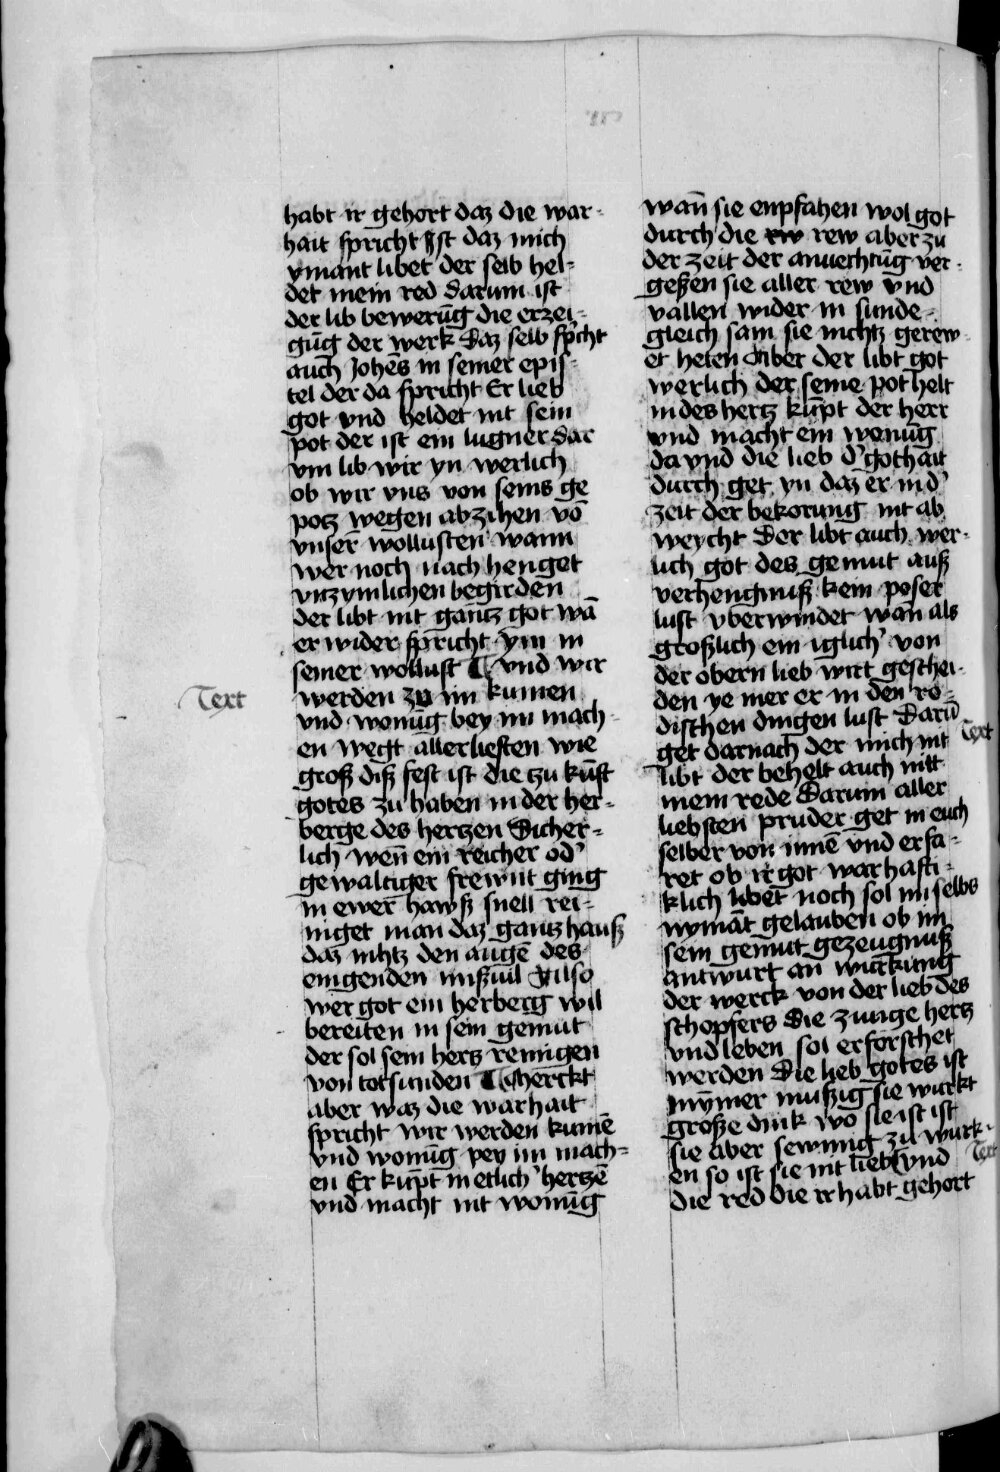 habt ir gehort daz die war-
hait spricht Ist daz mich
ymant libet der selb hel-
det mein red Darum ist
der lib bewerūg die erzei-
gūg der werk Daz selb spicht
auch Johēs in seiner epis-
tel der da spricht Er lieb
got vnd heldet nit sein
pot der ist ein lugner Dar
vm lib wir yn werlich
ob wir vns von seins ge
potz wegen abzihen vō
vnser wollusten wann
wer noch nach henget
vnzymlichen begirden
der libt nit gantz got wā
er wider spricht ym in
seiner wollust ¶ vnd wir
Text
werden zu im kumen
vnd wonūg bey im mach-
en wegt allerliesten wie
groß diß fest ist die tzu kūft
gotes zu haben in der her-
berge des hertzen Sicher-
lich wen̄ ein reicher od'
gewaltiger frewnt ging
in ewer hawß snell rei-
niget man daz gantz hauß
daz nihtz den augē des
eingenden mißuil Also
wer got ein herberg wil
bereiten in sein gemut
der sol sein hertz reinigen
von totsunden ¶ Merckt
aber waz die warhait
spricht wir werden kumē
vnd wonūg pey im mach-
en Er kūpt in etlich' hertzē
vnd macht nit wonūg
wan̄ sie enpfahen wol got
durch die rw rew aber zu
der zeit der anuechtūg ver-
geßen sie aller rew vnd
vallen wider in sunde
gleich sam sie nichtz gerew
et heten Aber der libt got
werlich der seine pot helt
in des hertz kūpt der herr
vnd macht ein wonūg
da vnd die lieb d' gothait
durch get yn daz er in d'
zeit der bekorung nit ab
weycht Der libt auch wer-
lich got des gemut auß
verhengnuß kein poser
lust vberwindet wan als
großlich ein iglich' von
der obern lieb wirt geschei-
den ye mer er in den ro-
dischen dingen lust Darū
get darnach der mich nit
Text
libt der behelt auch nitt
mein rede Darum aller
liebsten pruder get in euch
selber von innē vnd erfa-
ret ob ir got warhafti-
klich libet noch sol im selbs
nymāt gelauben ob im
sein gemut gezeugnuß
antwurt an wurkung
der werck von der lieb des
schopfers Die zunge hertz
vnd leben sol erforschet
werden Die lieb gotes ist
nymer mußig sie wurkt
große dink wo sie ist ist
sie aber sewmig zu wurk-
en so ist sie nit lieb ¶ vnd
Text
die red die ir habt gehort